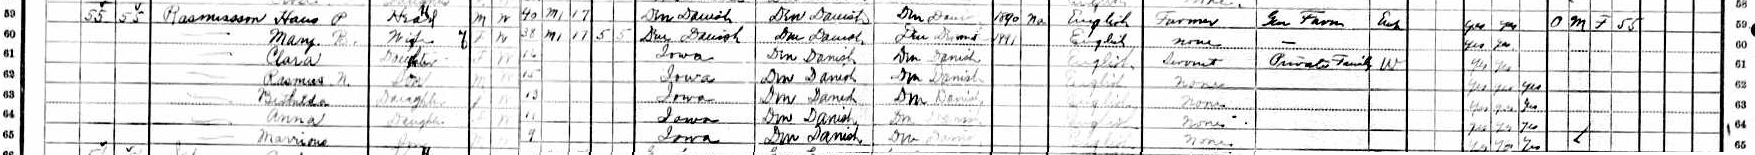 59 55 55 Rasmussson Hans P. Head M W 40 M1 17 Den Danish Den Danish Den Danish 1890 Na English Farmer Gen Farm Emp yes yes O M F 55 59
60 Mary B. Wife F W 38 M1 17 5 5 Den Danish Den Danish Den Danish 1891 English none yes yes 60
61 Clara Daughter F W 16 Iowa Den Danish Den Danish English Servant Private Family W yes yes 61
62 Rasmus N. Son M W 15 Iowa Den Danish Den Danish English None yes yes yes 62
63 Daughter F W 13 Iowa Den Danish Den Danish English None yes yes yes 63
64 Anna Daughter F W 11 Iowa Den Danish Den Danish English None yes yes yes 64
65 Marrious Son M W 9 Iowa Den Danish Den Danish English None yes yes yes 65